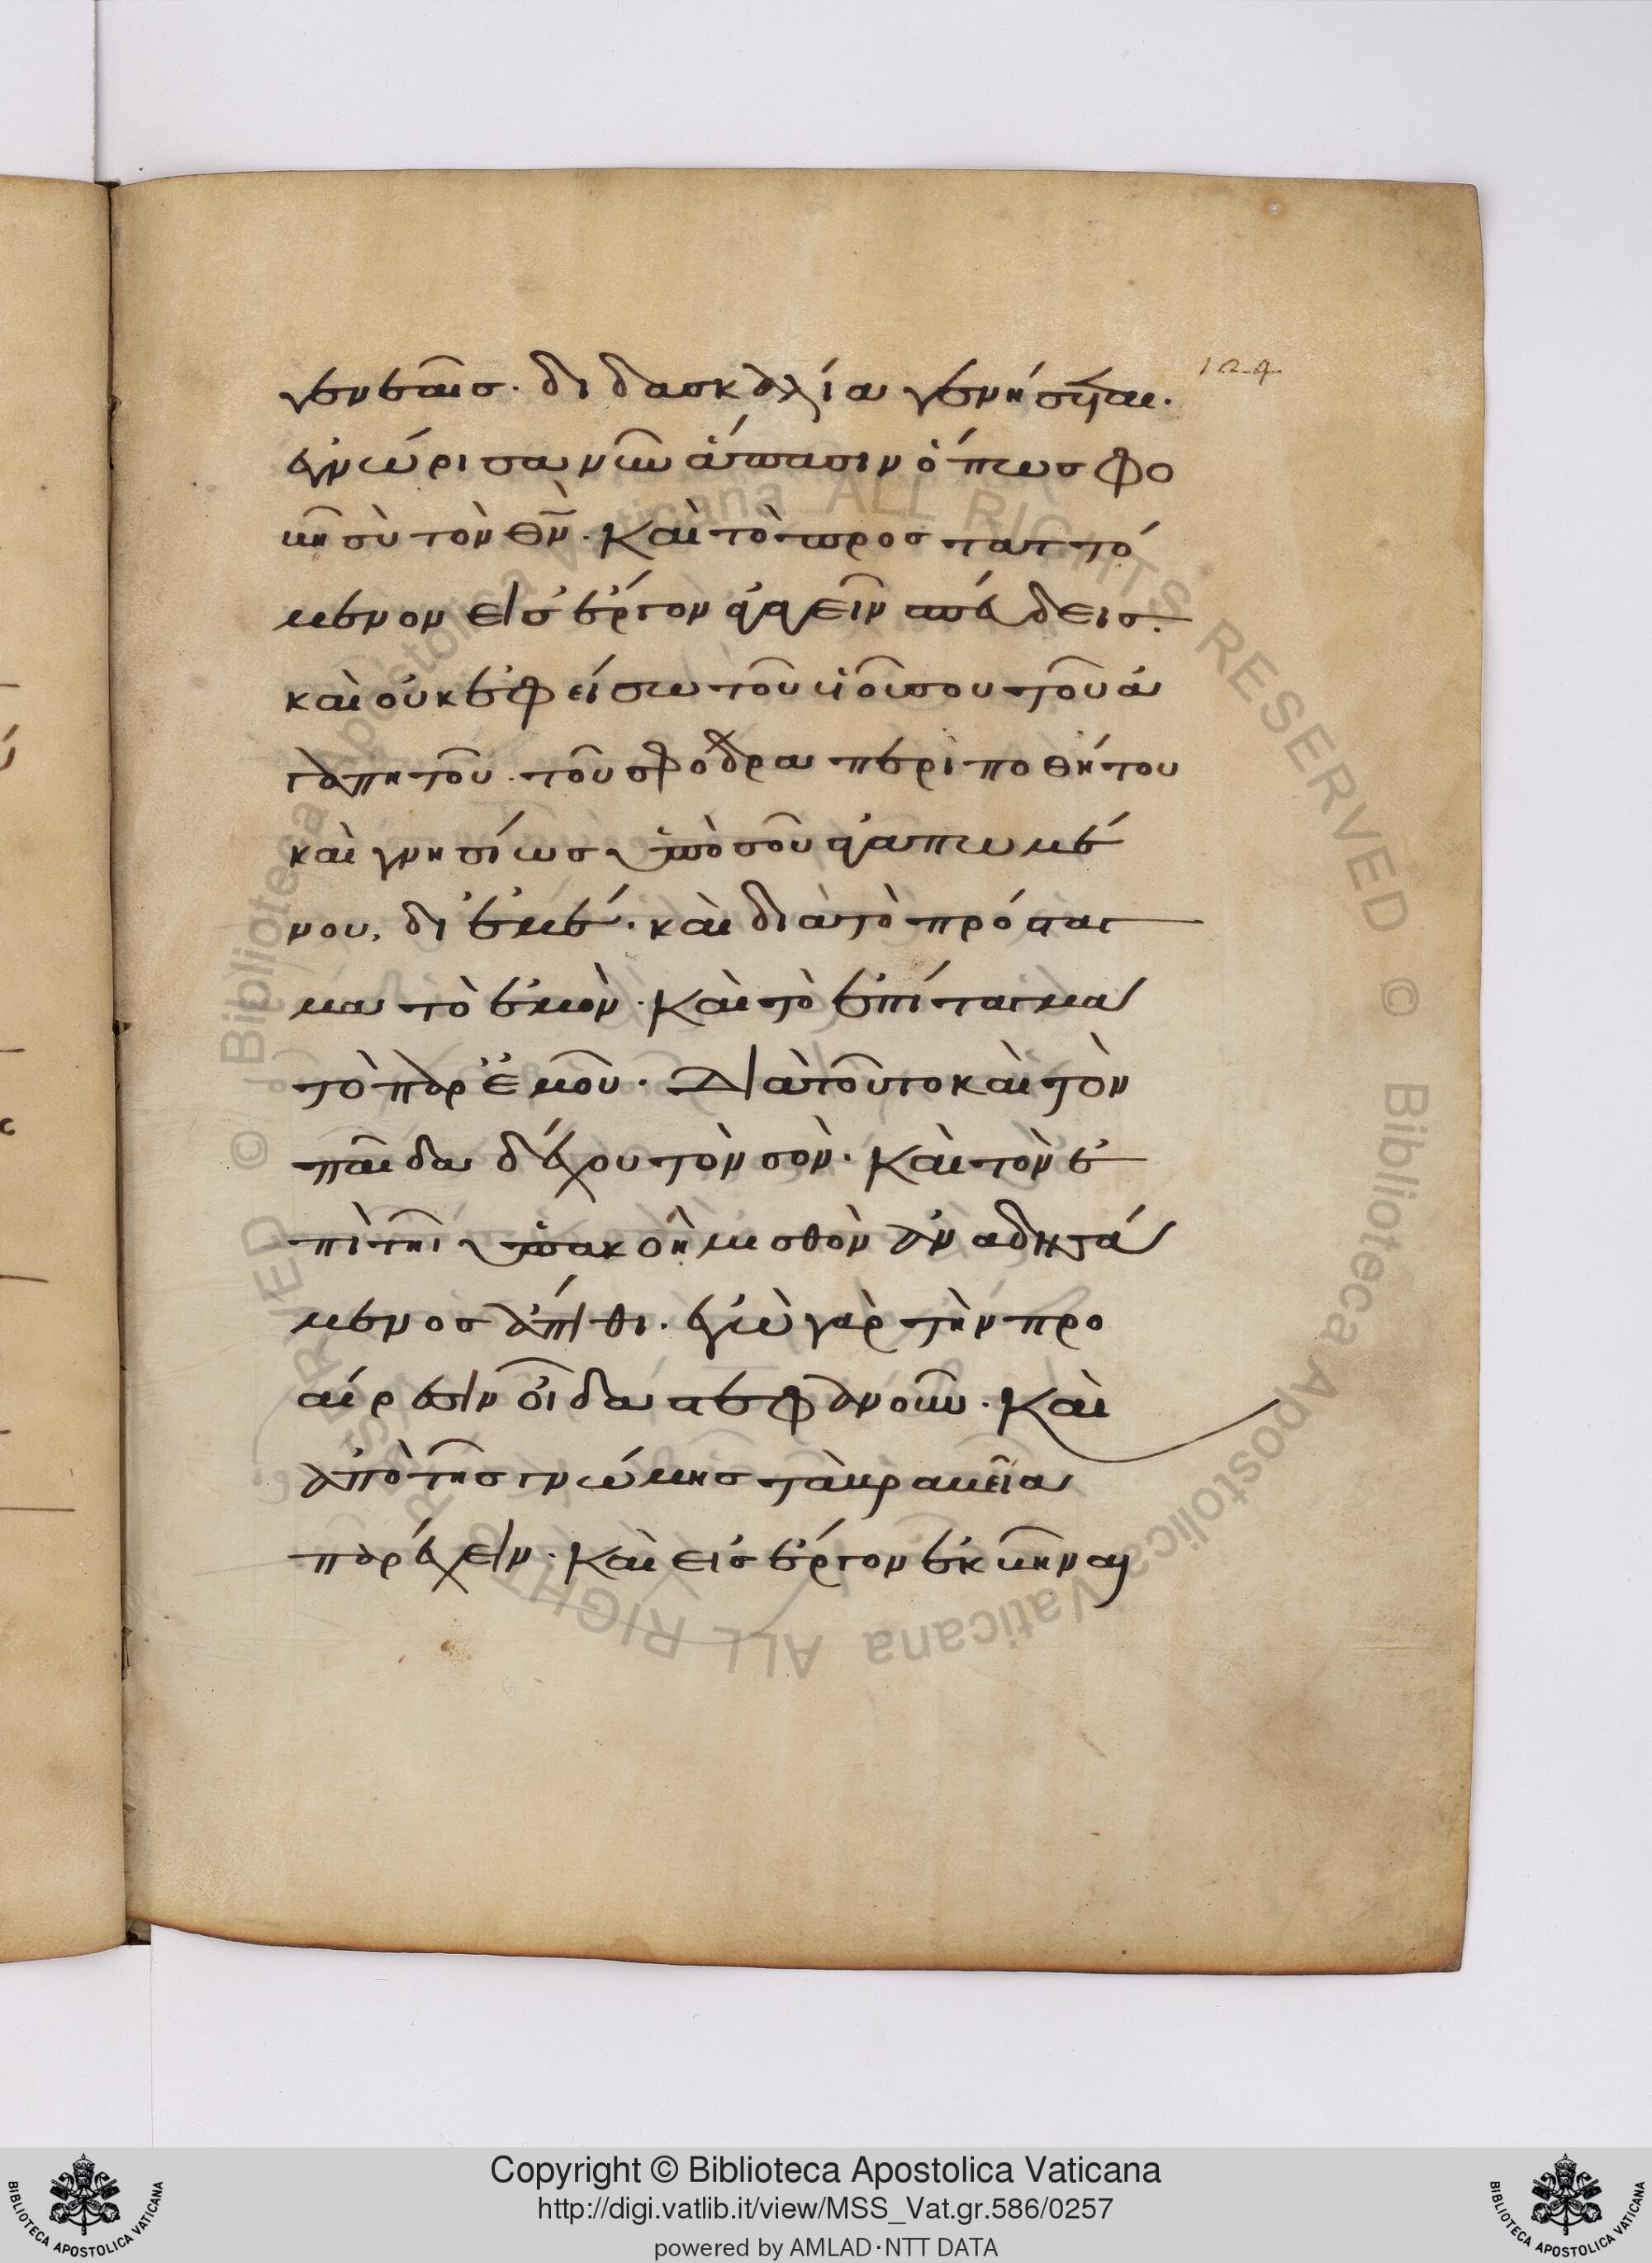 124
γενεαῖς. διδασκαλία γενήσηται.
ἐγνώρισα νῦν ἅπασιν ὅπως φο
βῆ σὺ τὸν θν̅. Καὶ τὸ προσταττό
μενον εἰς ἔργον ἀγαγεῖν σπεύδεις.
καὶ οὐκ ἐφείσω τοῦ υἱοῦ σου τοῦ ἀ
γαπητοῦ. τοῦ σφόδρα περιποθήτου
καὶ γνησίως ὑπὸ σοῦ ἀγαπωμέ
νου, δι' ἐμέ. καὶ διὰ τὸ πρόσταγ
μα τὸ ἐμὸν. Καὶ τὸ ἐπίταγμα
τὸ παρ' ἐμοῦ. Διὰ τοῦτο καὶ τὸν
παῖδα δέχου τὸν σὸν. Καὶ τὸν ἐ
πὶ τῆι ὑπακοῆ μισθὸν ἀναδησά
μενος ἄπιθι. ἐγὼ γὰρ τὴν προ
αίρεσιν οἶδα στεφανοῦν. Καὶ
ἀπὸ τῆς γνώμης τὰ βραβεῖα
παρέχειν. Καὶ εἰς ἔργον ἐκβῆναι
Copyright © Biblioteca Apostolica Vaticana
http://digi.vatlib.it/view/MSS_Vat.gr.586/0257
powered by AMLAD·NTT DATA
BIBLIOTECA APOSTOLICA VATICANA
BIBLIOTECA APOSTOLICA VATICANA
© Biblioteca Apostolica Vaticana ALL RIGHTS RESERVED © Biblioteca Apostolica Vaticana ALL RIGHTS RESERVED